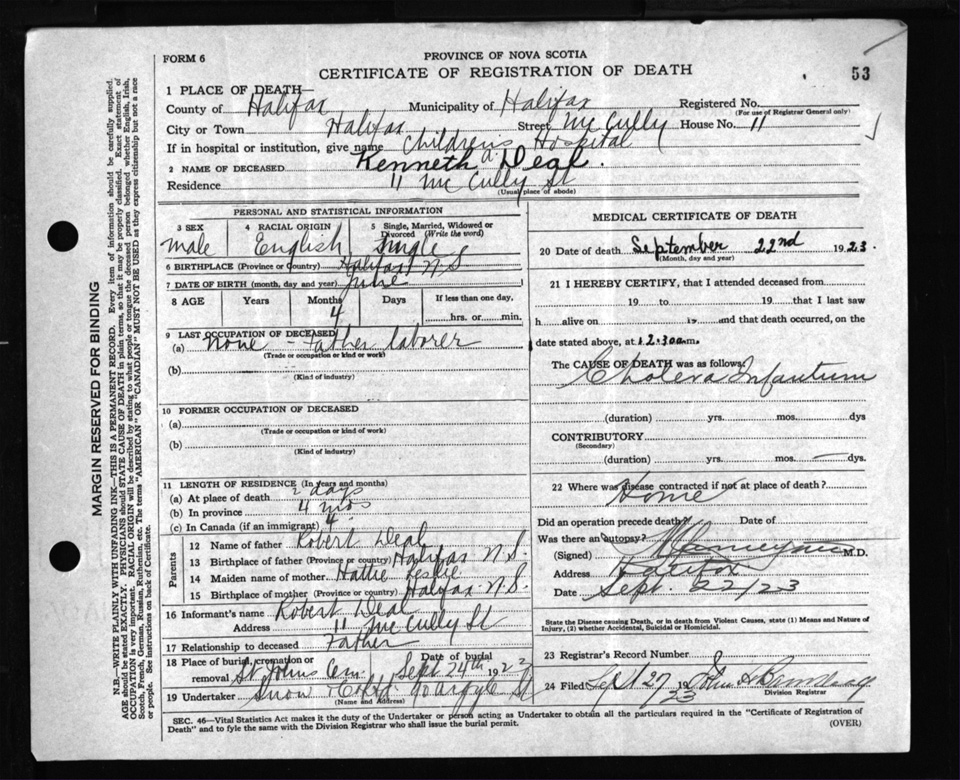 FORM 6
PROVINCE OF NOVA SCOTIA
CERTIFICATE OF REGISTRATION OF DEATH
53
1 PLACE OF DEATH—
County of Halifax Municipality of Halifax Registered No.
(For use of Registrar General only)
City or Town Halifax Street Mc Cully House No. 11
If in hospital or institution, give name Children's Hospital
2 NAME OF DECEASED Kenneth a. Deal.
Residence 11 Mc Cully St
(Usual place of abode)
PERSONAL AND STATISTICAL INFORMATION
3 SEX 4 RACIAL ORIGIN 5 Single, Married, Widowed or Divorced (Write the word)
male English Single
6 BIRTHPLACE (Province or Country) Halifax N S
7 DATE OF BIRTH (month, day and year) June
8 AGE Years Months Days If less than one day,
4 hrs. or min.
9 LAST OCCUPATION OF DECEASED
(a) None - Father laborer
(Trade or occupation or kind or work)
(b)
(Kind of industry)
10 FORMER OCCUPATION OF DECEASED
(a)
(Trade or occupation or kind of work)
(b)
(Kind of industry)
11 LENGTH OF RESIDENCE (In years and months)
(a) At place of death 2 days
(b) In province 4 mos
(c) In Canada (if an immigrant) 4
Parents
12 Name of father Robert Deal
13 Birthplace of father (Province or country) Halifax N.S.
14 Maiden name of mother Hattie Leslie
15 Birthplace of mother (Province or country) Halifax N.S.
16 Informant's name Robert Deal
Address 11 Mc Cully St
17 Relationship to deceased Father
18 Place of burial, cremation or removal St Johns Cem. Date of burial Sept 24th 1923
19 Undertaker Snow & Co Ltd. 90 Argyle St
(Name and Address)
MEDICAL CERTIFICATE OF DEATH
20 Date of death September 22nd 1923.
(Month, day and year)
21 I HEREBY CERTIFY, that I attended deceased from
19 to 19 that I last saw
h alive on 19 and that death occurred, on the
date stated above, at 12.30 a.m.
The CAUSE OF DEATH was as follows:
Cholera Infantum
(duration) yrs. mos. dys
CONTRIBUTORY
(Secondary)
(duration) yrs. mos. dys.
22 Where was disease contracted if not at place of death?
Home
Did an operation precede death? Date of
Was there an autopsy?
(Signed) M.D.
Address Halifax
Date Sept. 22/23
State the Disease causing Death, or in death from Violent Causes, state (1) Means and Nature of Injury, (2) whether Accidental, Suicidal or Homicidal.
23 Registrar's Record Number
24 Filed Sept 27 1923 John
Division Registrar
SEC. 46—Vital Statistics Act makes it the duty of the Undertaker or person acting as Undertaker to obtain all the particulars required in the "Certificate of Registration of
Death" and to fyle the same with the Division Registrar who shall issue the burial permit. (OVER)
MARGIN RESERVED FOR BINDING
N.B.—WRITE PLAINLY WITH UNFADING INK—THIS IS A PERMANENT RECORD. Every item of information should be carefully supplied.
AGE should be stated EXACTLY. PHYSICIANS should STATE CAUSE OF DEATH in plain terms, so that it may be properly classified. Exact statement of
OCCUPATION is very important. RACIAL ORIGIN will be described by stating to what people or tongue the deceased person belonged whether English, Irish,
Scotch, French, German, Russian, Ruthenian, etc. The terms "AMERICAN" OR "CANADIAN" MUST NOT BE USED as they express citizenship but not a race
or people. See instructions on back of Certificate.